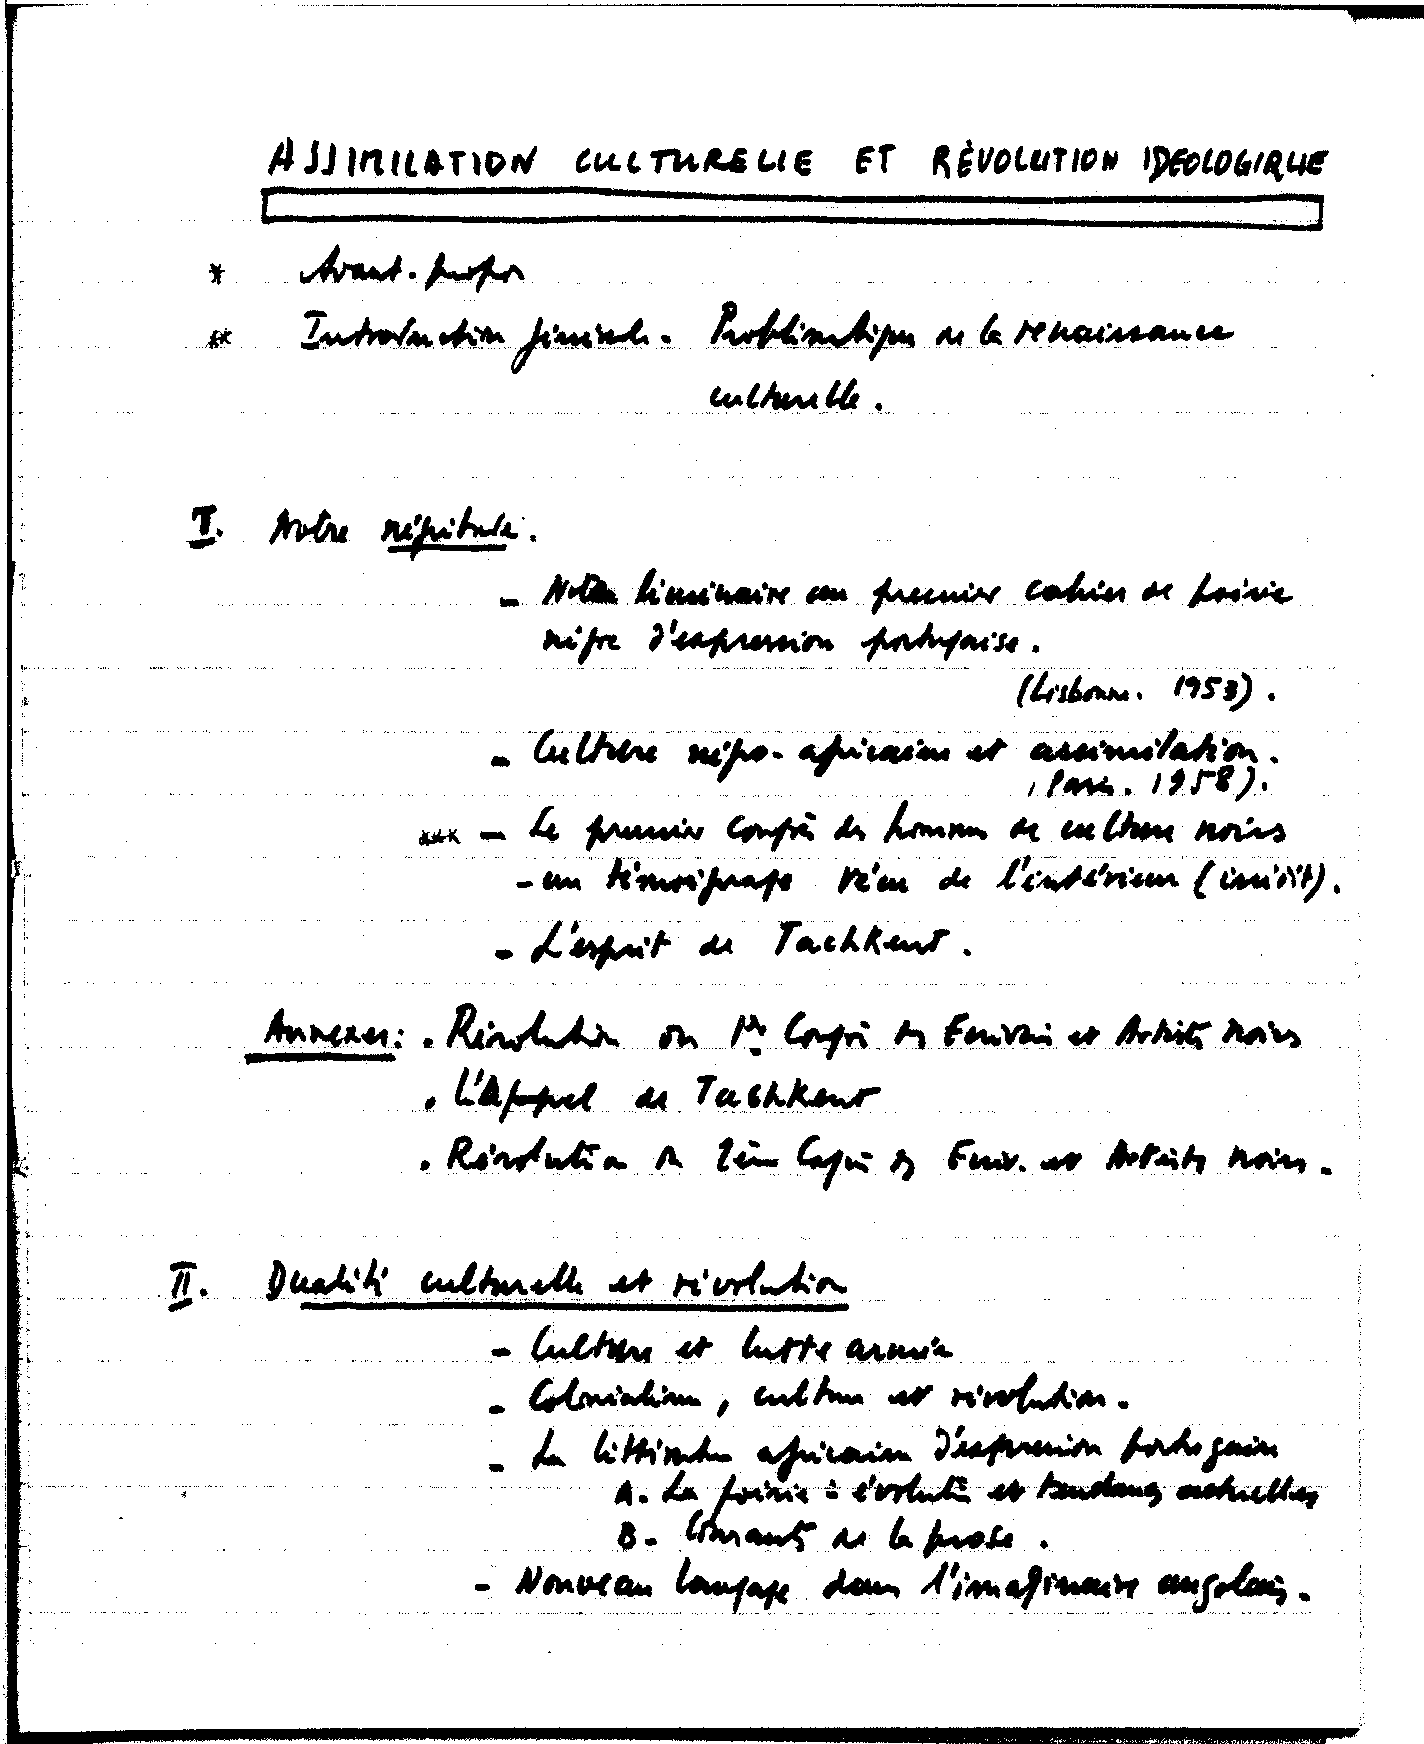 ASSIMILATION CULTURELLE ET RÉVOLUTION IDEOLOGIQUE
* Avant-propos
** Introduction générale. Problématique de la renaissance
culturelle.
I. Notre négritude.
- Note liminaire au premier cahier de poésie
nègre d'expression portugaise.
(Lisbonne. 1953).
- Culture négro-africaine et assimilation.
(Paris. 1958).
*** - Le premier Congrès des hommes de culture noirs
- un témoignage vécu de l'intérieur (inédit).
- L'esprit de Tachkent.
Annexes: . Résolution du 1er Congrès des Ecrivains et Artistes noirs
. L'Appel de Tachkent
. Résolution du 2ème Congrès des Ecriv. et Artistes noirs.
II. Dualité culturelle et révolution
- Culture et lutte armée
- Colonialisme, culture et révolution.
- La littérature africaine d'expression portugaise
A. La poésie : évolution et tendances actuelles
B. Courants de la prose.
- Nouveau langage dans l'imaginaire angolais.